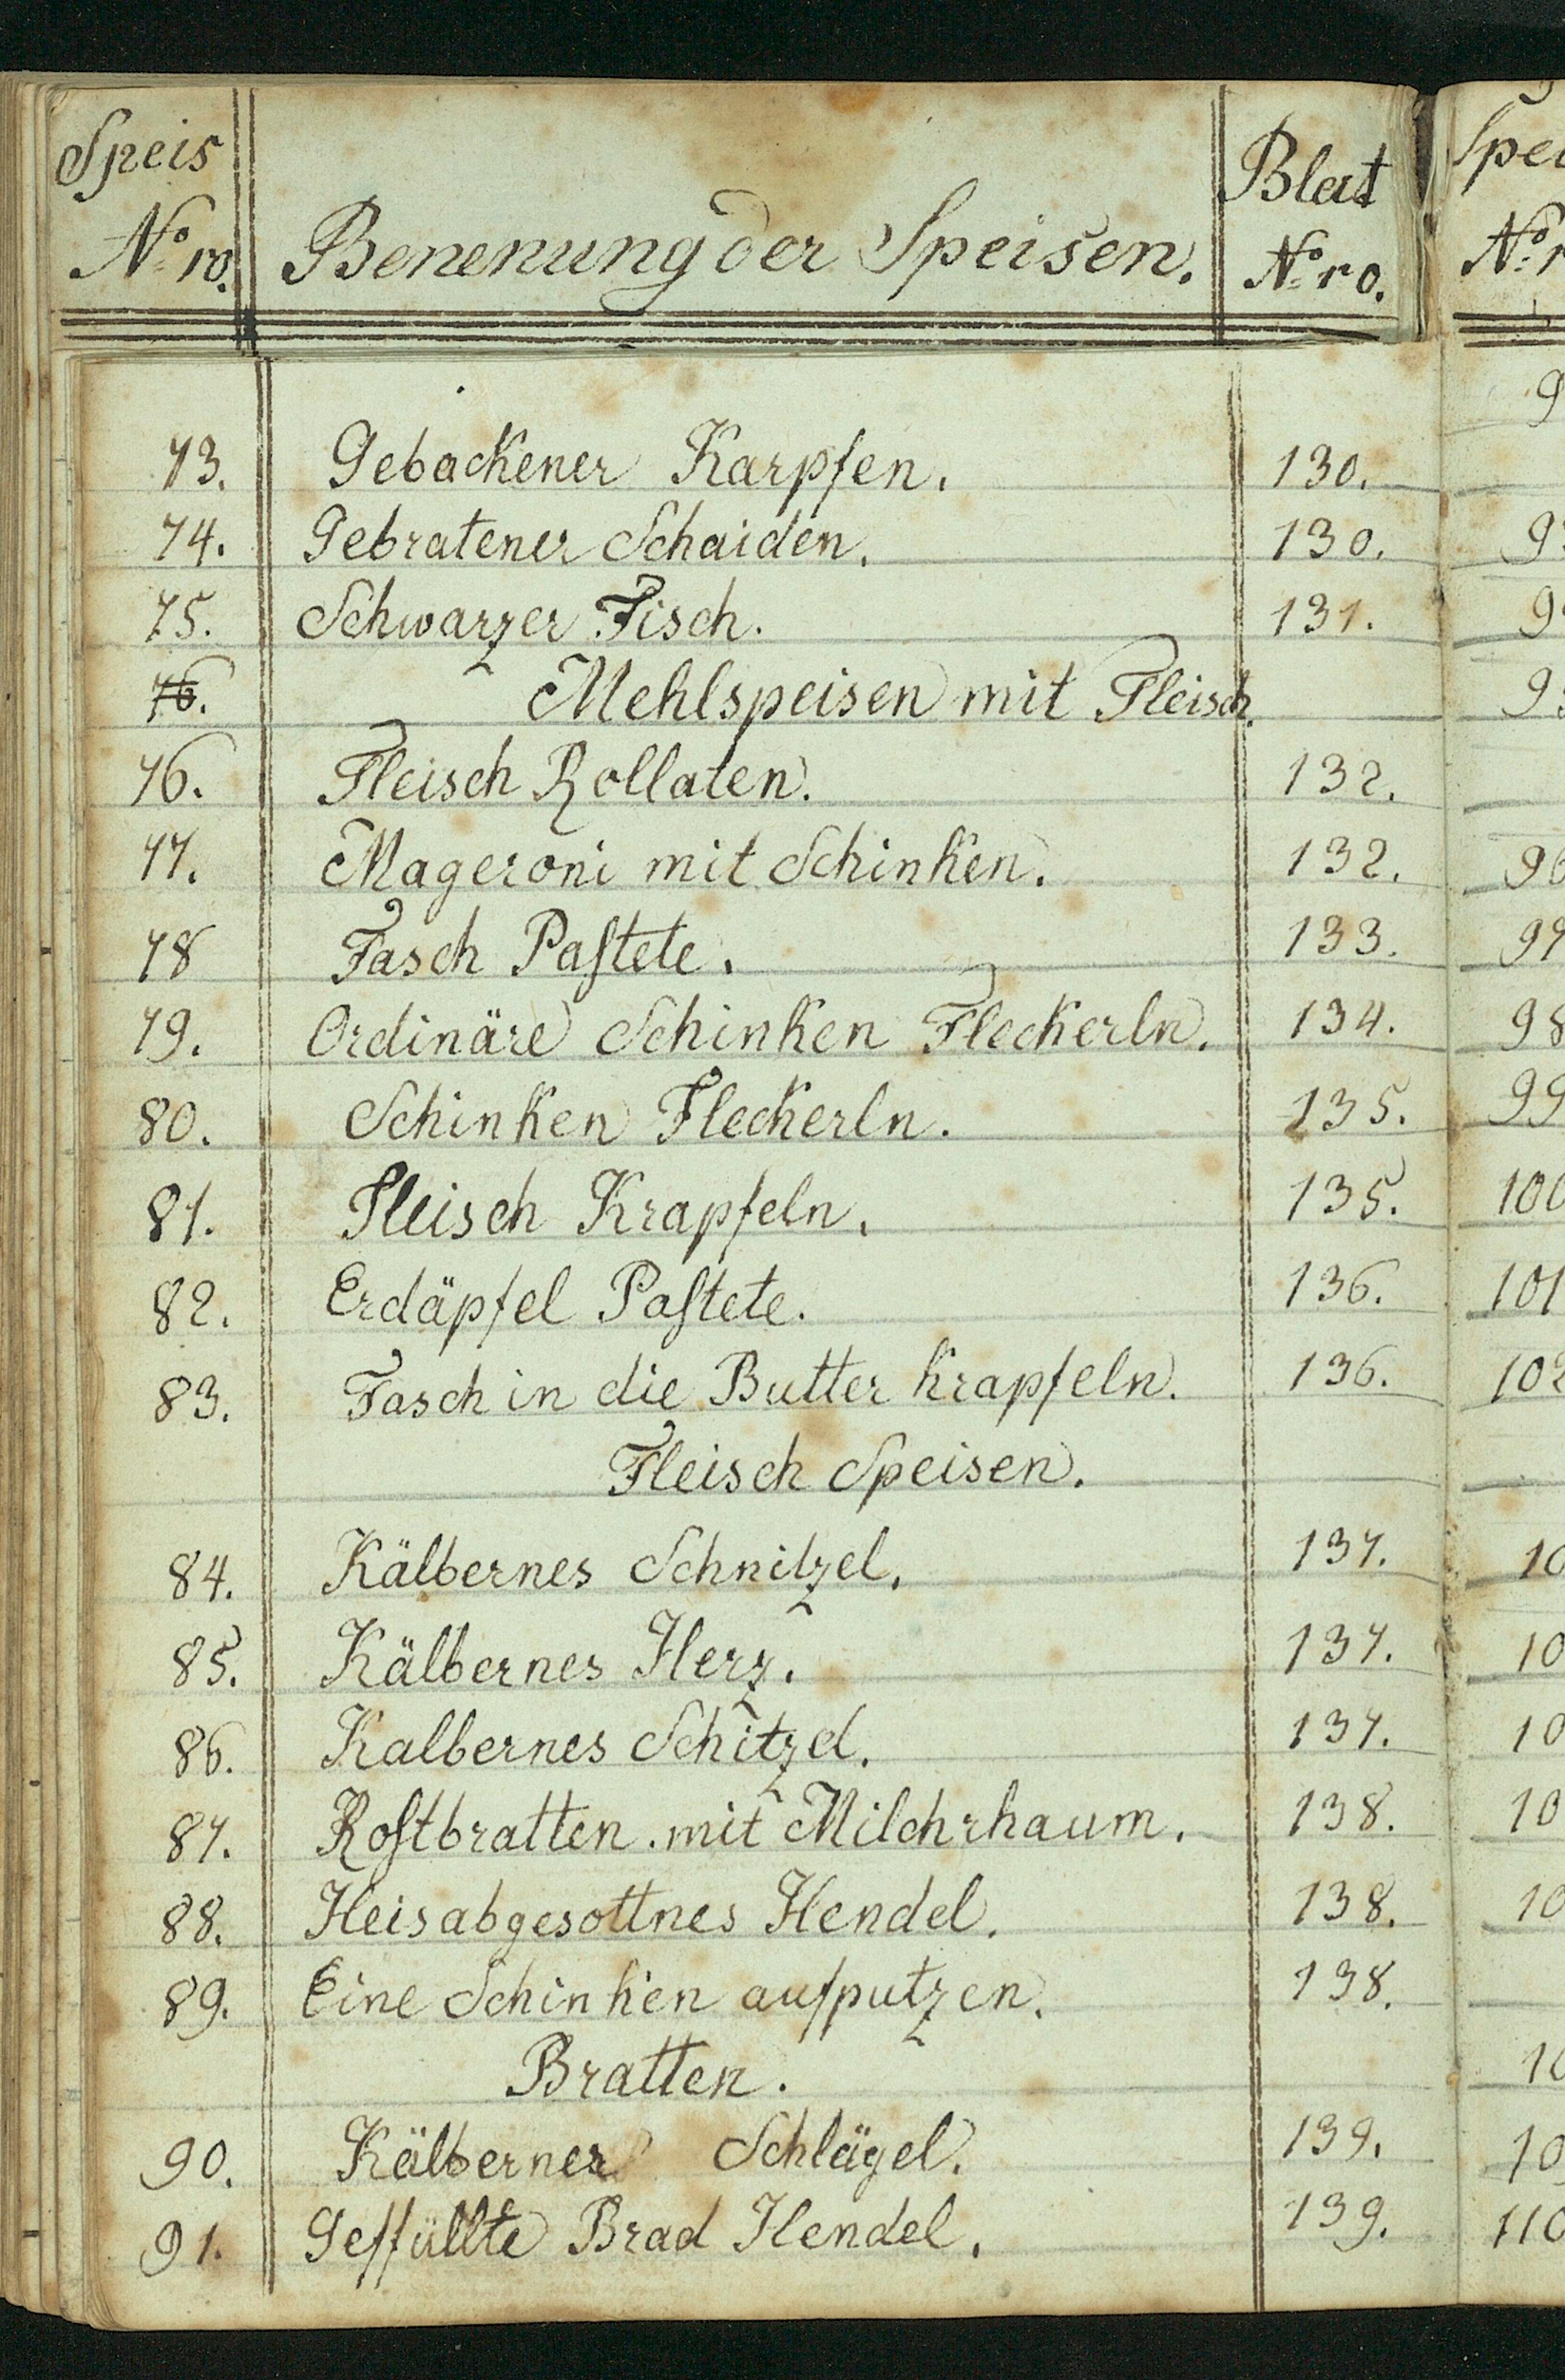 Speis
Nro.
Benenung der Speisen.
Blat
Nro.
73. Gebackener Karpfen. 130.
74. Gebratener Schaiden. 130.
75. Schwarzer Fisch. 131.
76. Mehlspeisen mit Fleisch.
76. Fleisch Rollaten. 132.
77. Mageroni mit Schinken. 132.
78 Fasch Paſtete. 133.
79. Ordinäre Schinken Fleckerln. 134.
80. Schinken Fleckerln. 135.
81. Fleisch Krapfeln. 135.
82. Erdäpfel Paſtete. 136.
83. Fasch in die Butter krapfeln. 136.
Fleisch Speisen.
84. Kälbernes Schnitzel. 137.
85. Kälbernes Herz. 137.
86. Kalbernes Schitzel. 137.
87. Roſtbratten. mit Milchrhaum. 138.
88. Heisabgesottnes Hendel. 138.
89. Eine Schinken aufputzen. 138.
Bratten.
90. Kälberner Schlägel. 139.
91. Geffüllte Brad Hendel. 139.
98
99
101